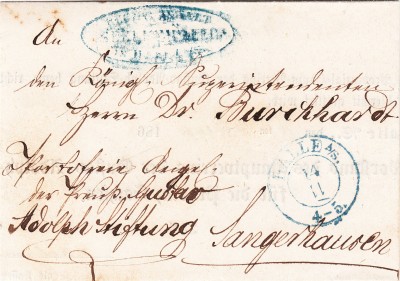 An
den Königl. Superintendenten
Herrn Dr. Burckhardt
HALLE A/S.
11
4-5.
Portofreie Angel.
der Preuß. Gustav
Adolph Stiftung
Sangerhausen